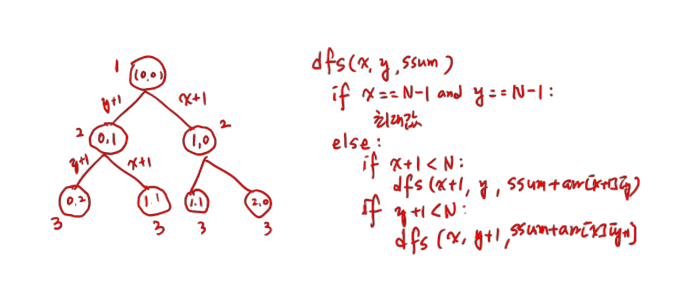 1
(0,0)
y+1
x+1
2
0,1
1,0
2
y+1
x+1
0,2
1,1
1,1
2,0
3
3
3
3
dfs(x, y, ssum)
if x==N-1 and y==N-1:
최대값
else:
if x+1<N:
dfs(x+1, y, ssum+arr[x+1][y])
if y+1<N:
dfs(x, y+1, ssum+arr[x][y+1])